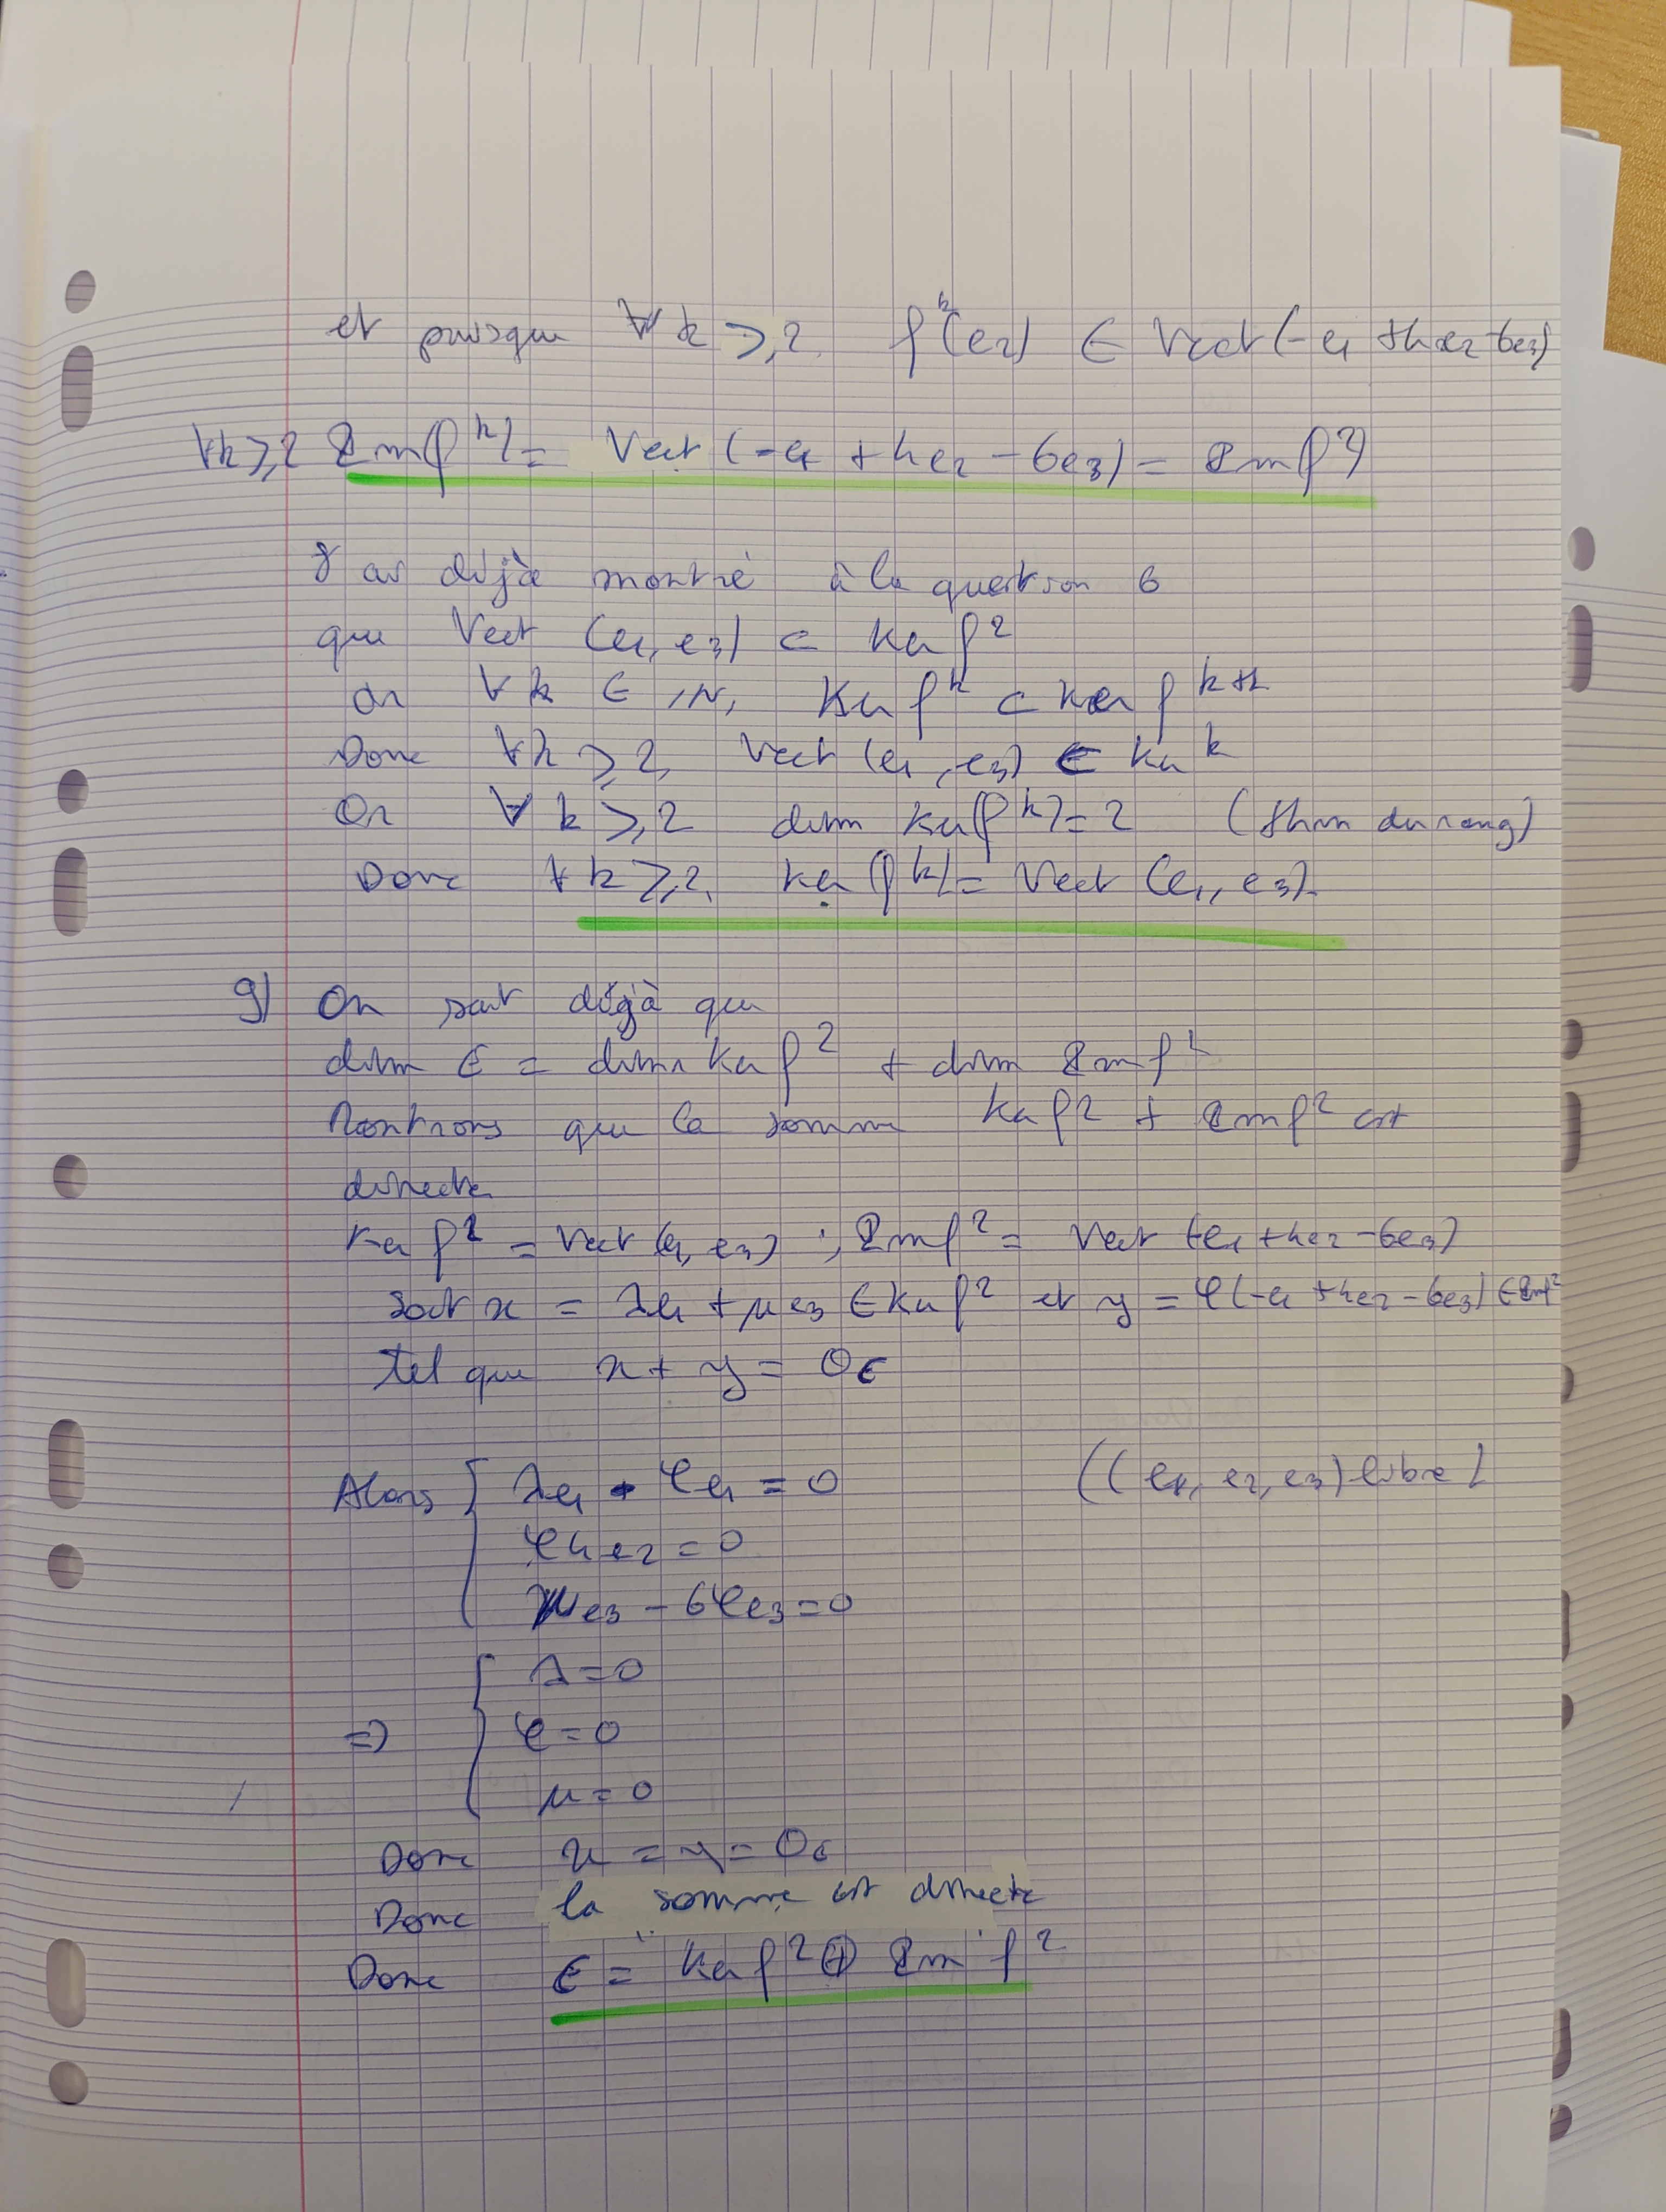 et puisque ∀k ⩾ 2 f^k(e2) ∈ Vect(-e1 + 4e2 - 6e3)
∀k ⩾ 2 Im(f^k) = Vect(-e1 + 4e2 - 6e3) = Im f²)
J'ai déjà montré à la question 6
que Vect (e1, e3) ⊂ Ker f²
Or ∀k ∈ IN, Ker f^k ⊂ Ker f^k+1
Donc ∀k ⩾ 2, Vect (e1, e3) ⊂ Ker^k
Or ∀k ⩾ 2 dim Ker(f^k) = 2 (thm du rang)
Donc ∀k ⩾ 2, Ker(f^k) = Vect (e1, e3).
9) On sait déjà que
dim E = dim Ker f² + dim Im f²
Montrons que la somme Ker f² + Im f² est
directe
Ker f² = Vect (e1, e3) ; Im f² = Vect (-e1 + 4e2 - 6e3)
soit x = λe1 + μe3 ∈ Ker f² et y = φ(-e1 + 4e2 - 6e3) ∈ Im f²
tel que x + y = 0E
Alors { λe1 - φe1 = 0 ((e1, e2, e3) libre)
φ4e2 = 0
μe3 - 6φe3 = 0
=> { λ = 0
φ = 0
μ = 0
Donc x = y = 0E
Donc la somme est directe
Donc E = Ker f² ⊕ Im f²